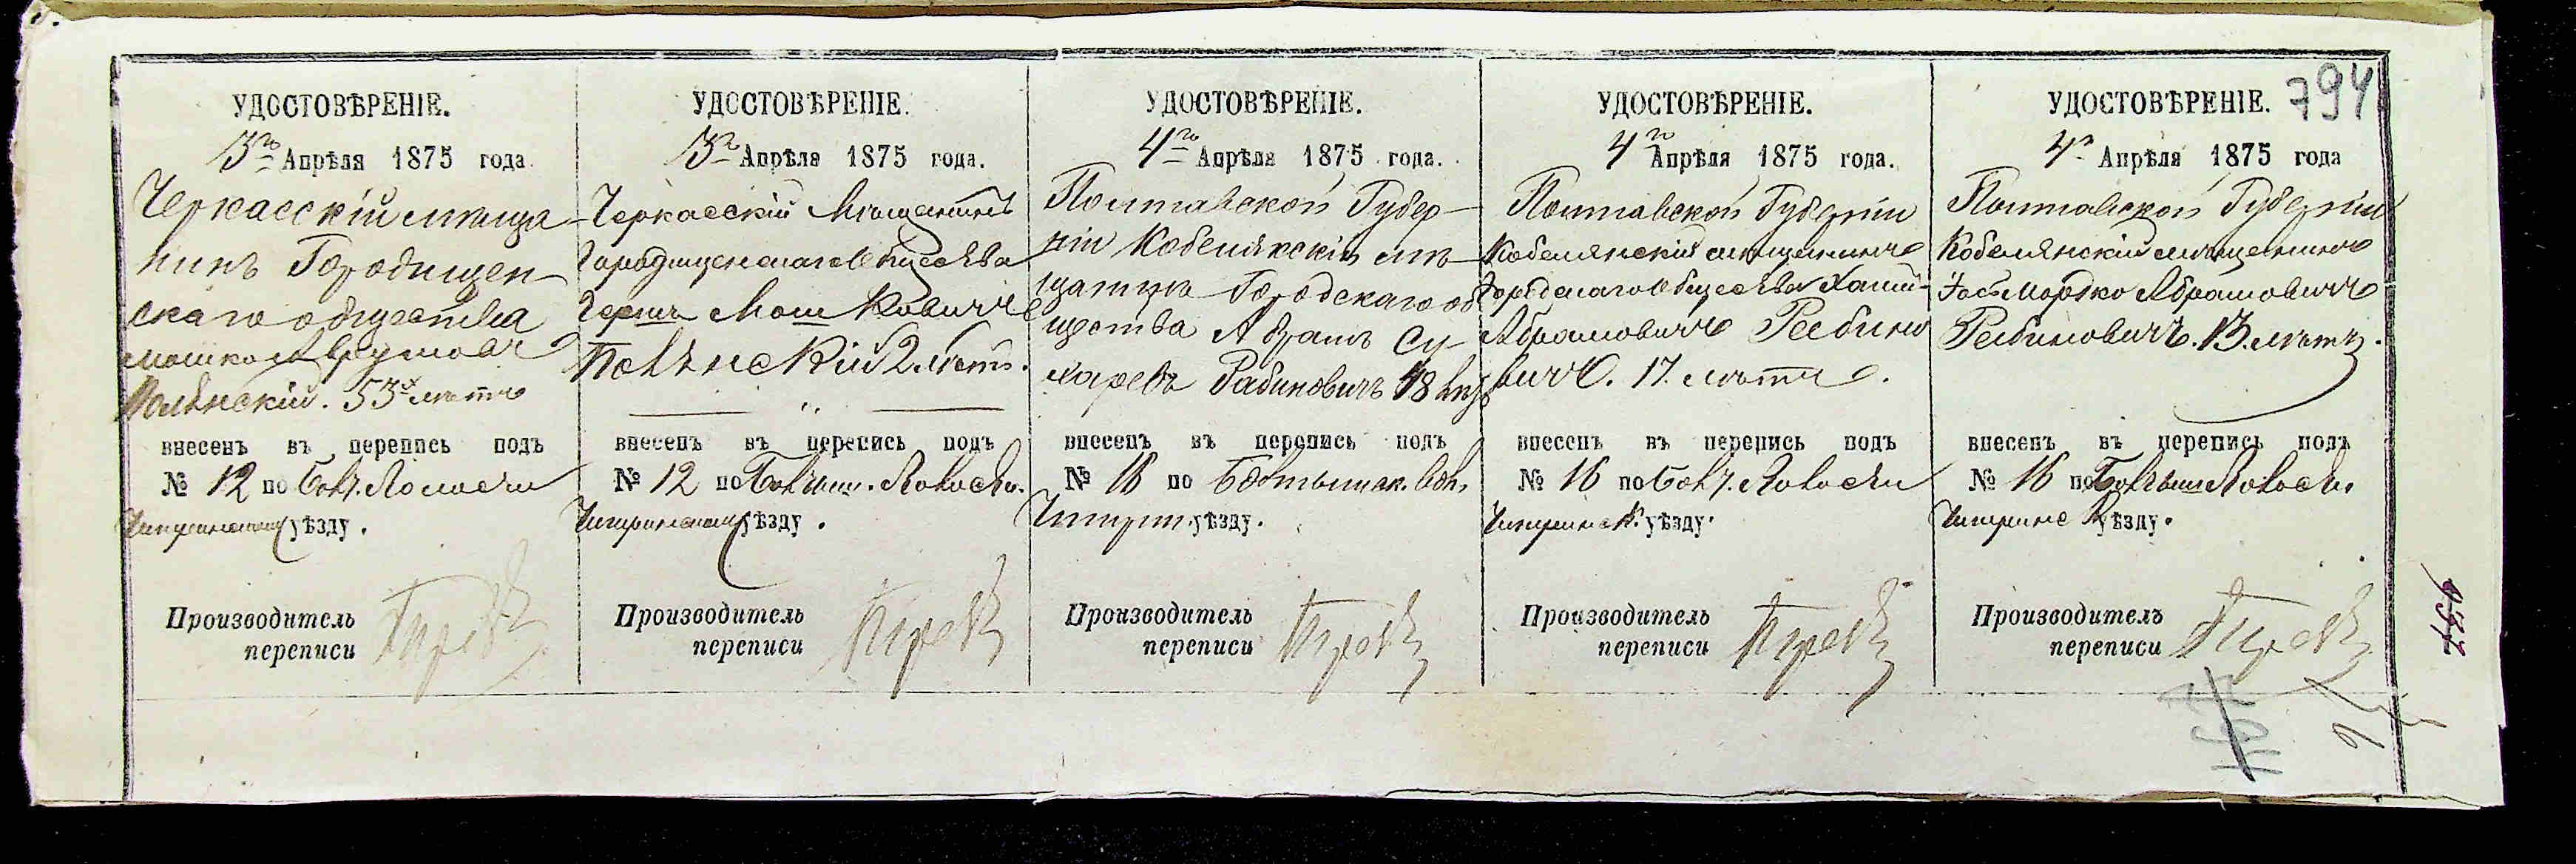 794
УДОСТОВѢРЕНІЕ.
3го Апрѣля 1875 года
Черкасскій мѣща-
нинъ Городищен-
скаго общества
Мошко
53х лѣтъ
внесенъ въ перепись подъ
№ 12 по
уѣзду.
Производитель
переписи
УДОСТОВѢРЕНІЕ.
3го Апрѣля 1875 года.
Черкасскій Мѣщанинъ
Городищенскаго Общества
Гершъ Мошковичъ
2 лѣтъ.
внесенъ въ перепись подъ
№ 12 по
Чигиринскому уѣзду.
Производитель
переписи
УДОСТОВѢРЕНІЕ.
4го Апрѣля 1875 года.
Полтавской Губер-
ніи Кобелякскій мѣ-
щанинъ Городскаго об
щества Абрамъ Су-
харевъ Рабиновичъ 48 лѣтъ
внесенъ въ перепись подъ
№ 16 по
Чигирин. уѣзду.
Производитель
переписи
УДОСТОВѢРЕНІЕ.
4го Апрѣля 1875 года.
Полтавской Губерніи
Кобелякскій мѣщанинъ
Городскаго Общества Хаим-
Абрамовичъ Рабино
вичъ. 17. лѣтъ.
внесенъ въ перепись подъ
№ 16 по
Чигиринск. уѣзду.
Производитель
переписи
УДОСТОВѢРЕНІЕ.
4го Апрѣля 1875 года
Полтавской Губерніи
Кобелякскій мѣщанинъ
Мордко Абрамовичъ
Рабиновичъ. 13. лѣтъ.
внесенъ въ перепись подъ
№ 16 по
Чигиринск уѣзду.
Производитель
переписи